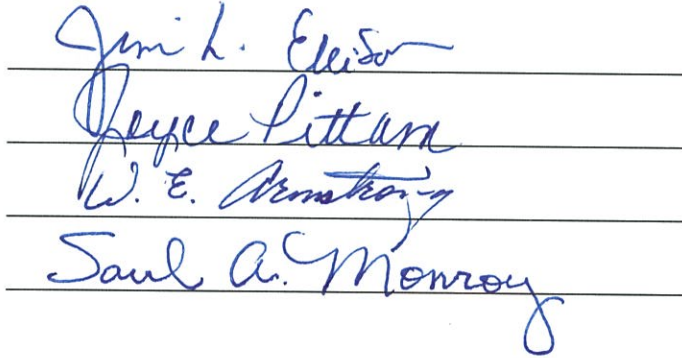 Jimi L. Ellison
Joyce Pittam
W. E. Armstrong
Saul A. Monroy